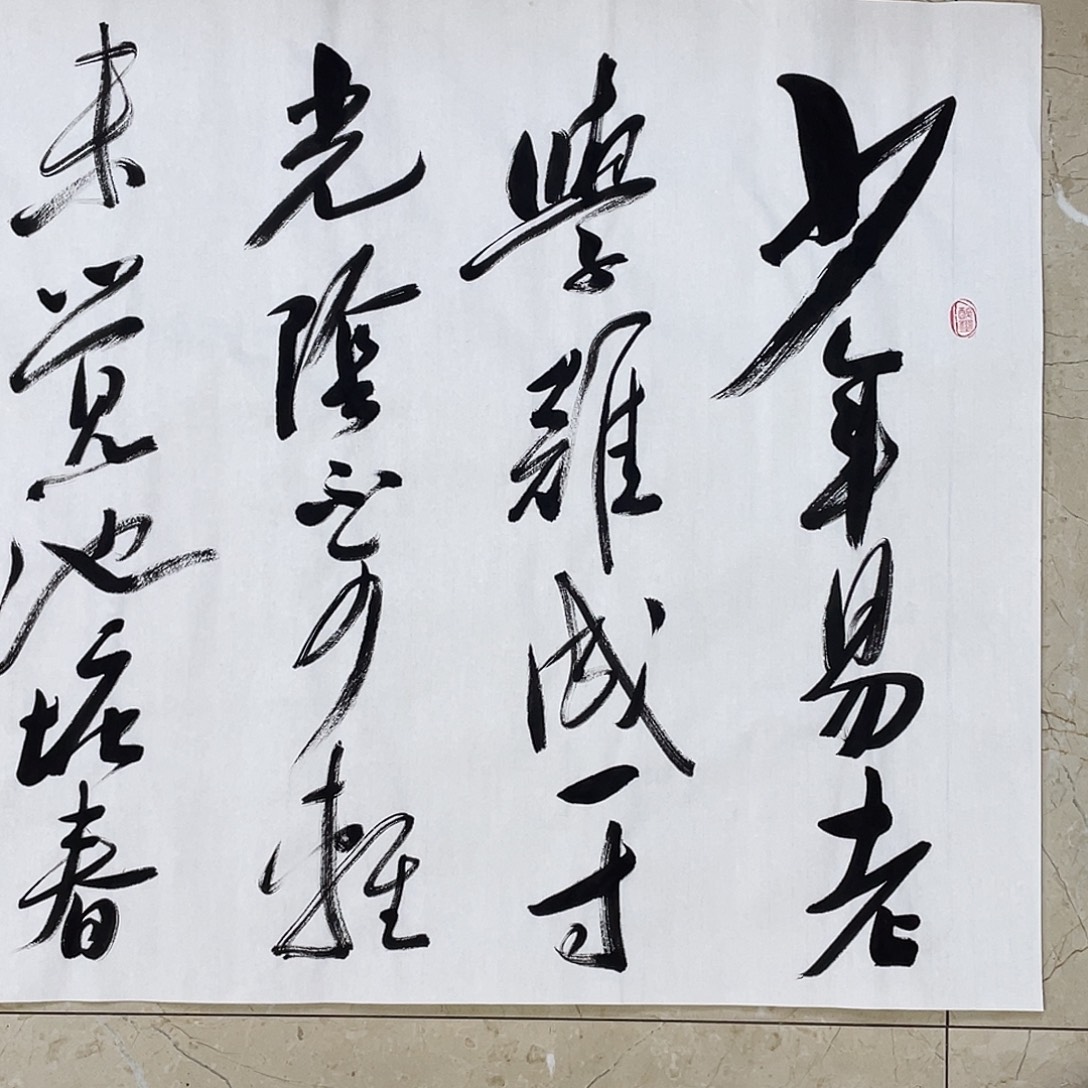 少年易老
學難成一寸
光陰不可輕
未觉池塘春